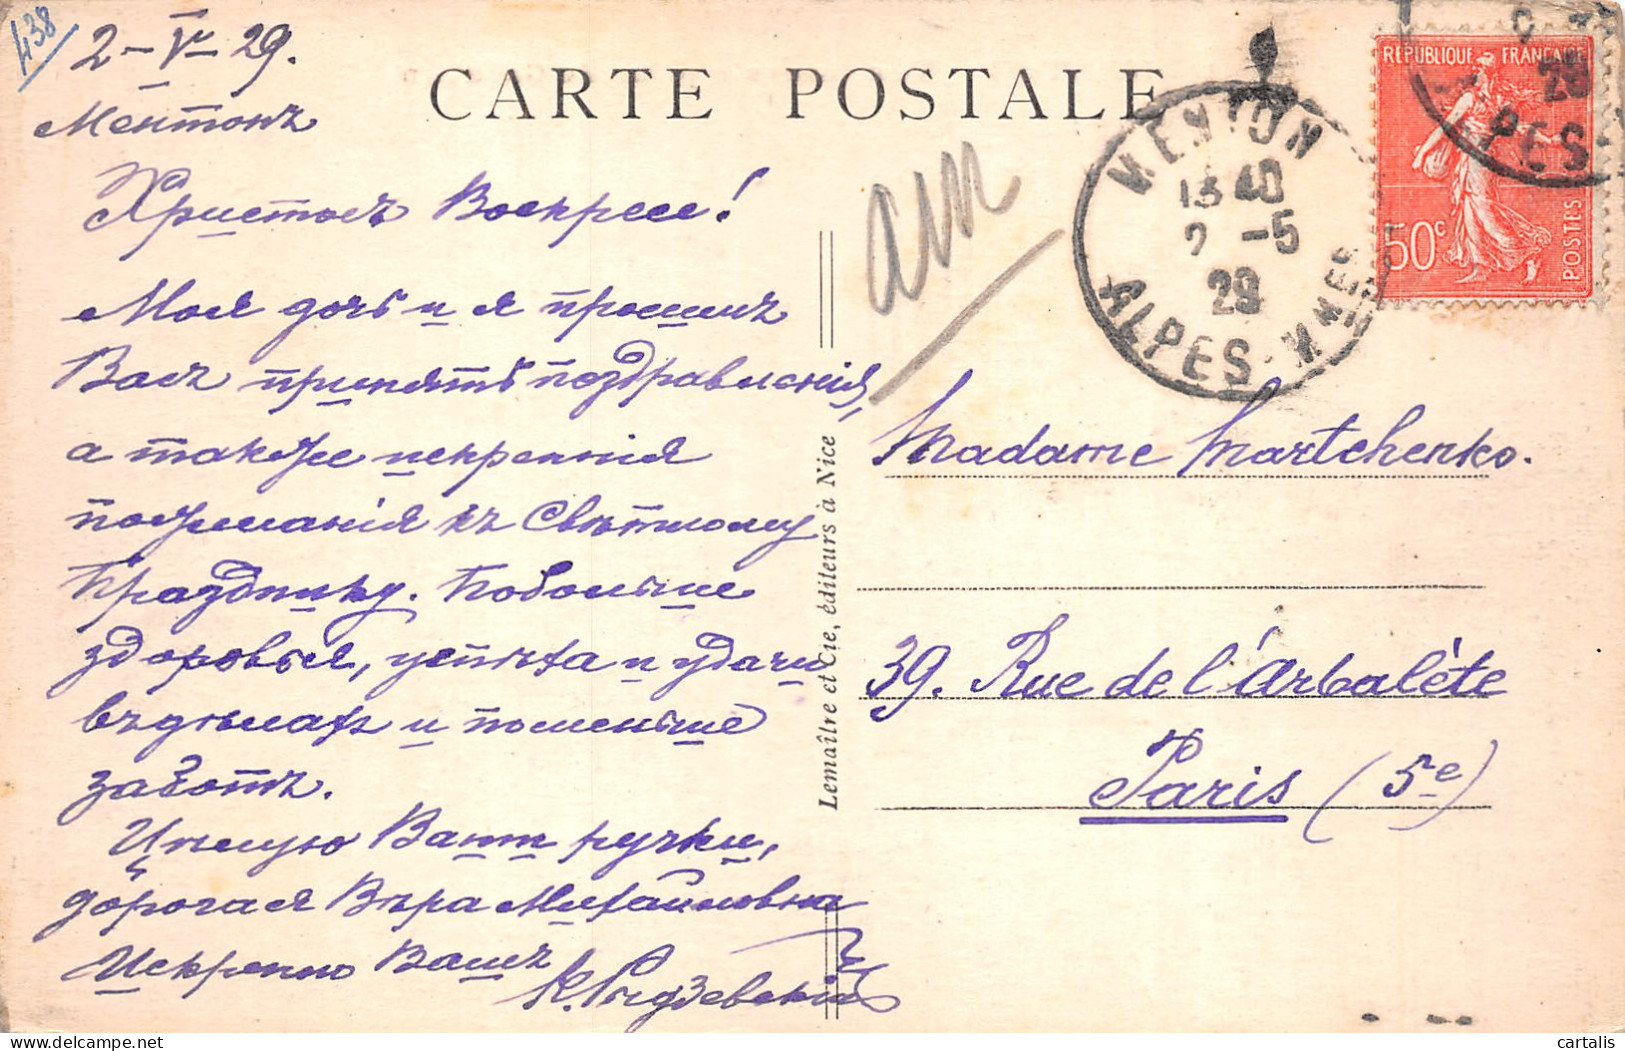 438
2-V-29.
Ментонъ
CARTE POSTALE
Христосъ Воскресе!
Моя дочь и я просимъ
Васъ принять поздравленія,
а также искреннія
пожеланія къ Свѣтлому
Празднику. Побольше
здоровья, успѣха и удачи
въ дѣлахъ и поменьше
заботъ.
Цѣлую Ваши ручки,
дорогая Вѣра Михайловна
Искренно Вашъ
К.
Lemaître et Cie, éditeurs à Nice
MENTON
13 40
2 -5
29
ALPES-MMES
REPUBLIQUE FRANÇAISE
50c
POSTES
29
PES
Madame Martchenko.
39. Rue de l'Arbalète
Paris (5e)
cartalis